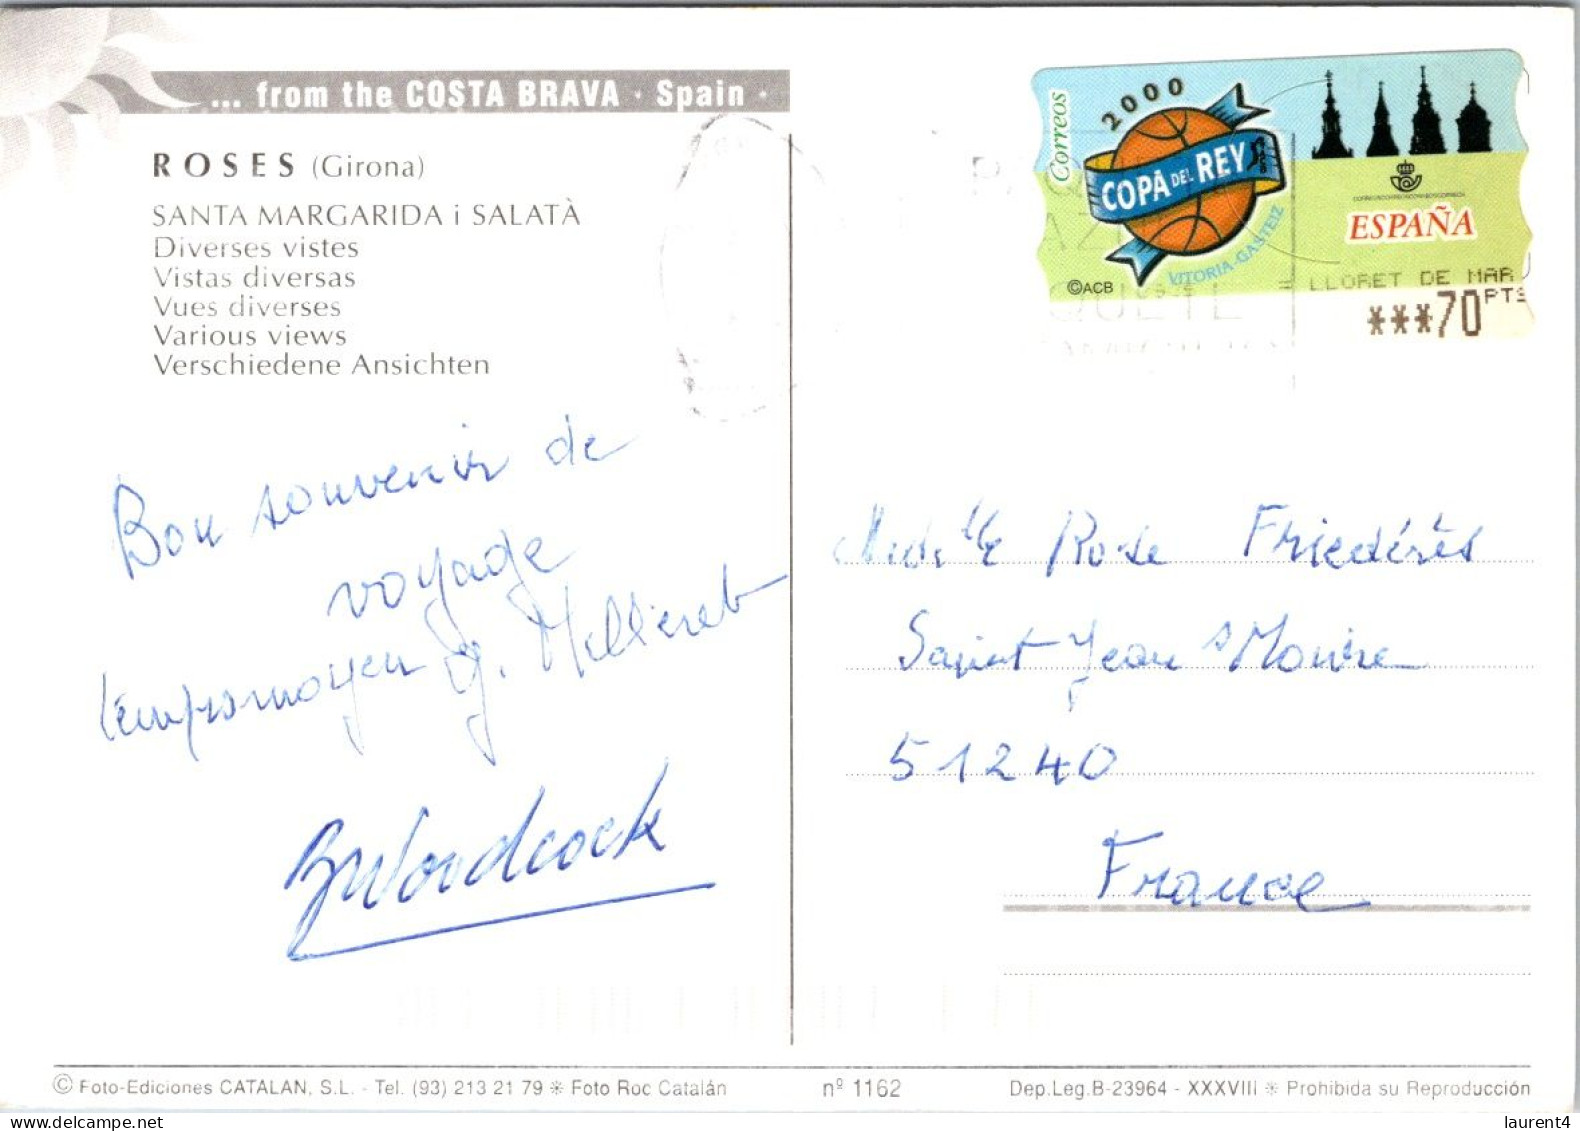 ... from the COSTA BRAVA · Spain ·
ROSES (Girona)
SANTA MARGARIDA i SALATÀ
Diverses vistes
Vistas diversas
Vues diverses
Various views
Verschiedene Ansichten
Correos
2000
COPA DEL REY
VITORIA-GASTEIZ
©ACB
ESPAÑA
LLORET DE MAR
***70 PTS
Bon souvenir de
voyage
J.
Woodcock
Rose
Saint Jean
51240
France
© Foto-Ediciones CATALAN, S.L. - Tel. (93) 213 21 79 ✳ Foto Roc Catalán
nº 1162
Dep.Leg.B-23964 - XXXVIII ✳ Prohibida su Reproducción
laurent4